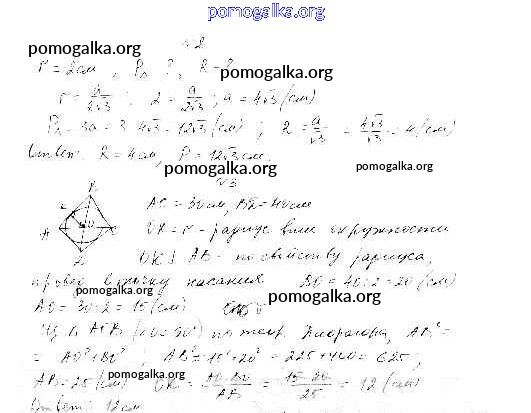 pomogalka.org
№2
pomogalka.org
r = 2см, P₃ - ?, R - ?
pomogalka.org
r = a/2√3 ; 2 = a/2√3 ; a = 4√3 (см)
P₃ = 3a = 3 · 4√3 = 12√3 (см) ; R = a/√3 = 4√3/√3 = 4 (см)
Ответ: R = 4см, P = 12√3 см.
pomogalka.org
pomogalka.org
№3
AC = 30 см, BD = 40 см
OK = r - радиус впис. окружности
OK ⊥ AB - по свойству радиуса,
провед. в точку касания BO = 40 : 2 = 20 (см)
pomogalka.org
AO = 30 : 2 = 15 (см)
pomogalka.org
Из △ AOB (∠O = 90°) по теор. Пифагора, AB² =
= AO² + BO² ; AB² = 15² + 20² = 225 + 400 = 625,
pomogalka.org
AB = 25 (см) OK = AO·BO/AB = 15·20/25 = 12 (см)
Ответ: 12 см